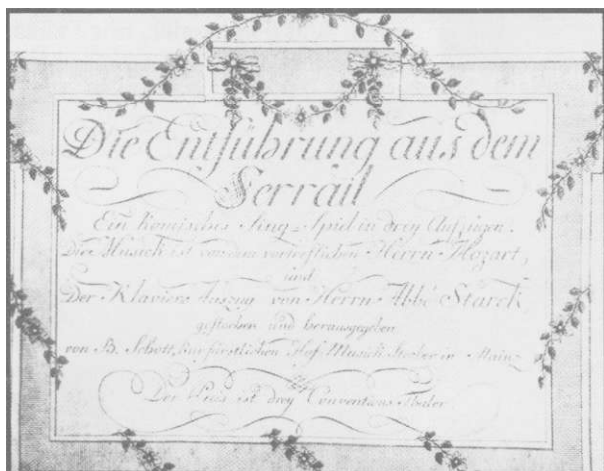 Die Entführung aus dem
Serrail
Ein komisches Sing-Spiel in drey Aufzügen.
Die Musick ist von dem vortreflichen Herrn Mozart,
und
Der Klavier Auszug von Herrn Abbé Starck
gestochen und herausgegeben
von B. Schott, kurfürstlichen Hof Musick Stecher in Mainz
Der Preis ist drey Conventions Thaler